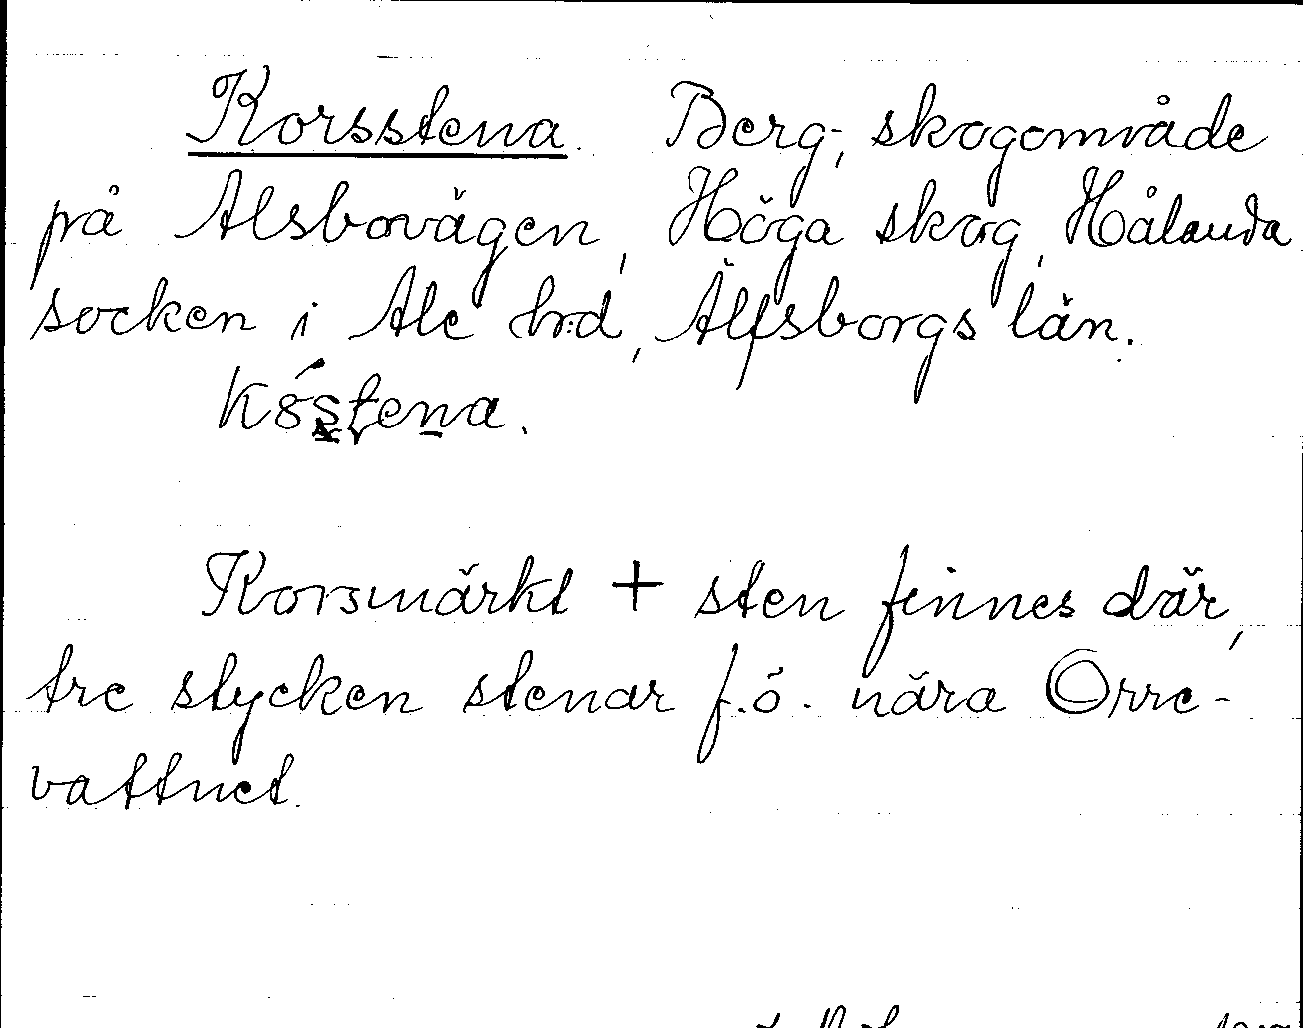 Korsstena. Berg-, skogområde
på Alsbovägen, Höga skog, Hålanda
socken i Ale hrd, Älfsborgs län.
Kóstena.
Korsmärkt + sten finnes där,
tre stycken stenar f.ö. nära Orre-
vattnet.